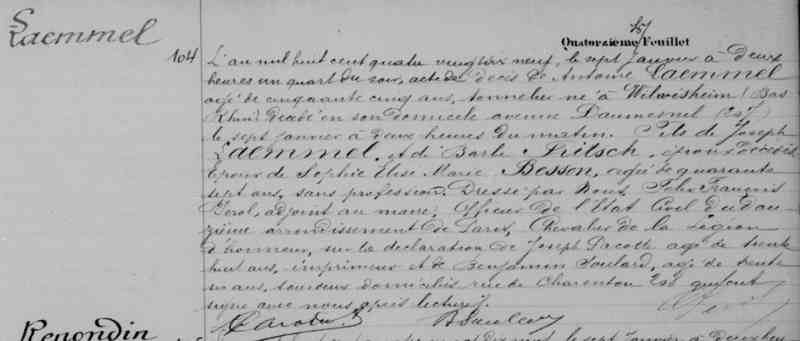 Quatorzième Feuillet
Laemmel
104
L'an mil huit cent quatre vingt dix neuf, le sept janvier à deux
heures un quart du soir, acte de décès de Antoine Laemmel
agé de cinquante cinq ans, tonnelier né à Wilwisheim (Bas
Rhin) décédé en son domicile avenue Daumesnil
le sept janvier à deux heures du matin. Fils de Joseph
Laemmel, et de Barbe Fritsch, époux décédés
Epoux de Sophie Elise Marie Besson, agée de quarante
sept ans, sans profession. Dressé par Nous, Félix François
adjoint au maire, Officier de l'Etat Civil du dou
zième arrondissement de Paris, Chevalier de la Légion
d'honneur, sur la déclaration de Joseph Lacotte agé de trente
huit ans, imprimeur et de Benjamin Soulard, agé de trente
ans, tous deux domiciliés rue de Charenton 158 qui ont
signé avec nous après lecture.
Renondin
le sept janvier à deux heu